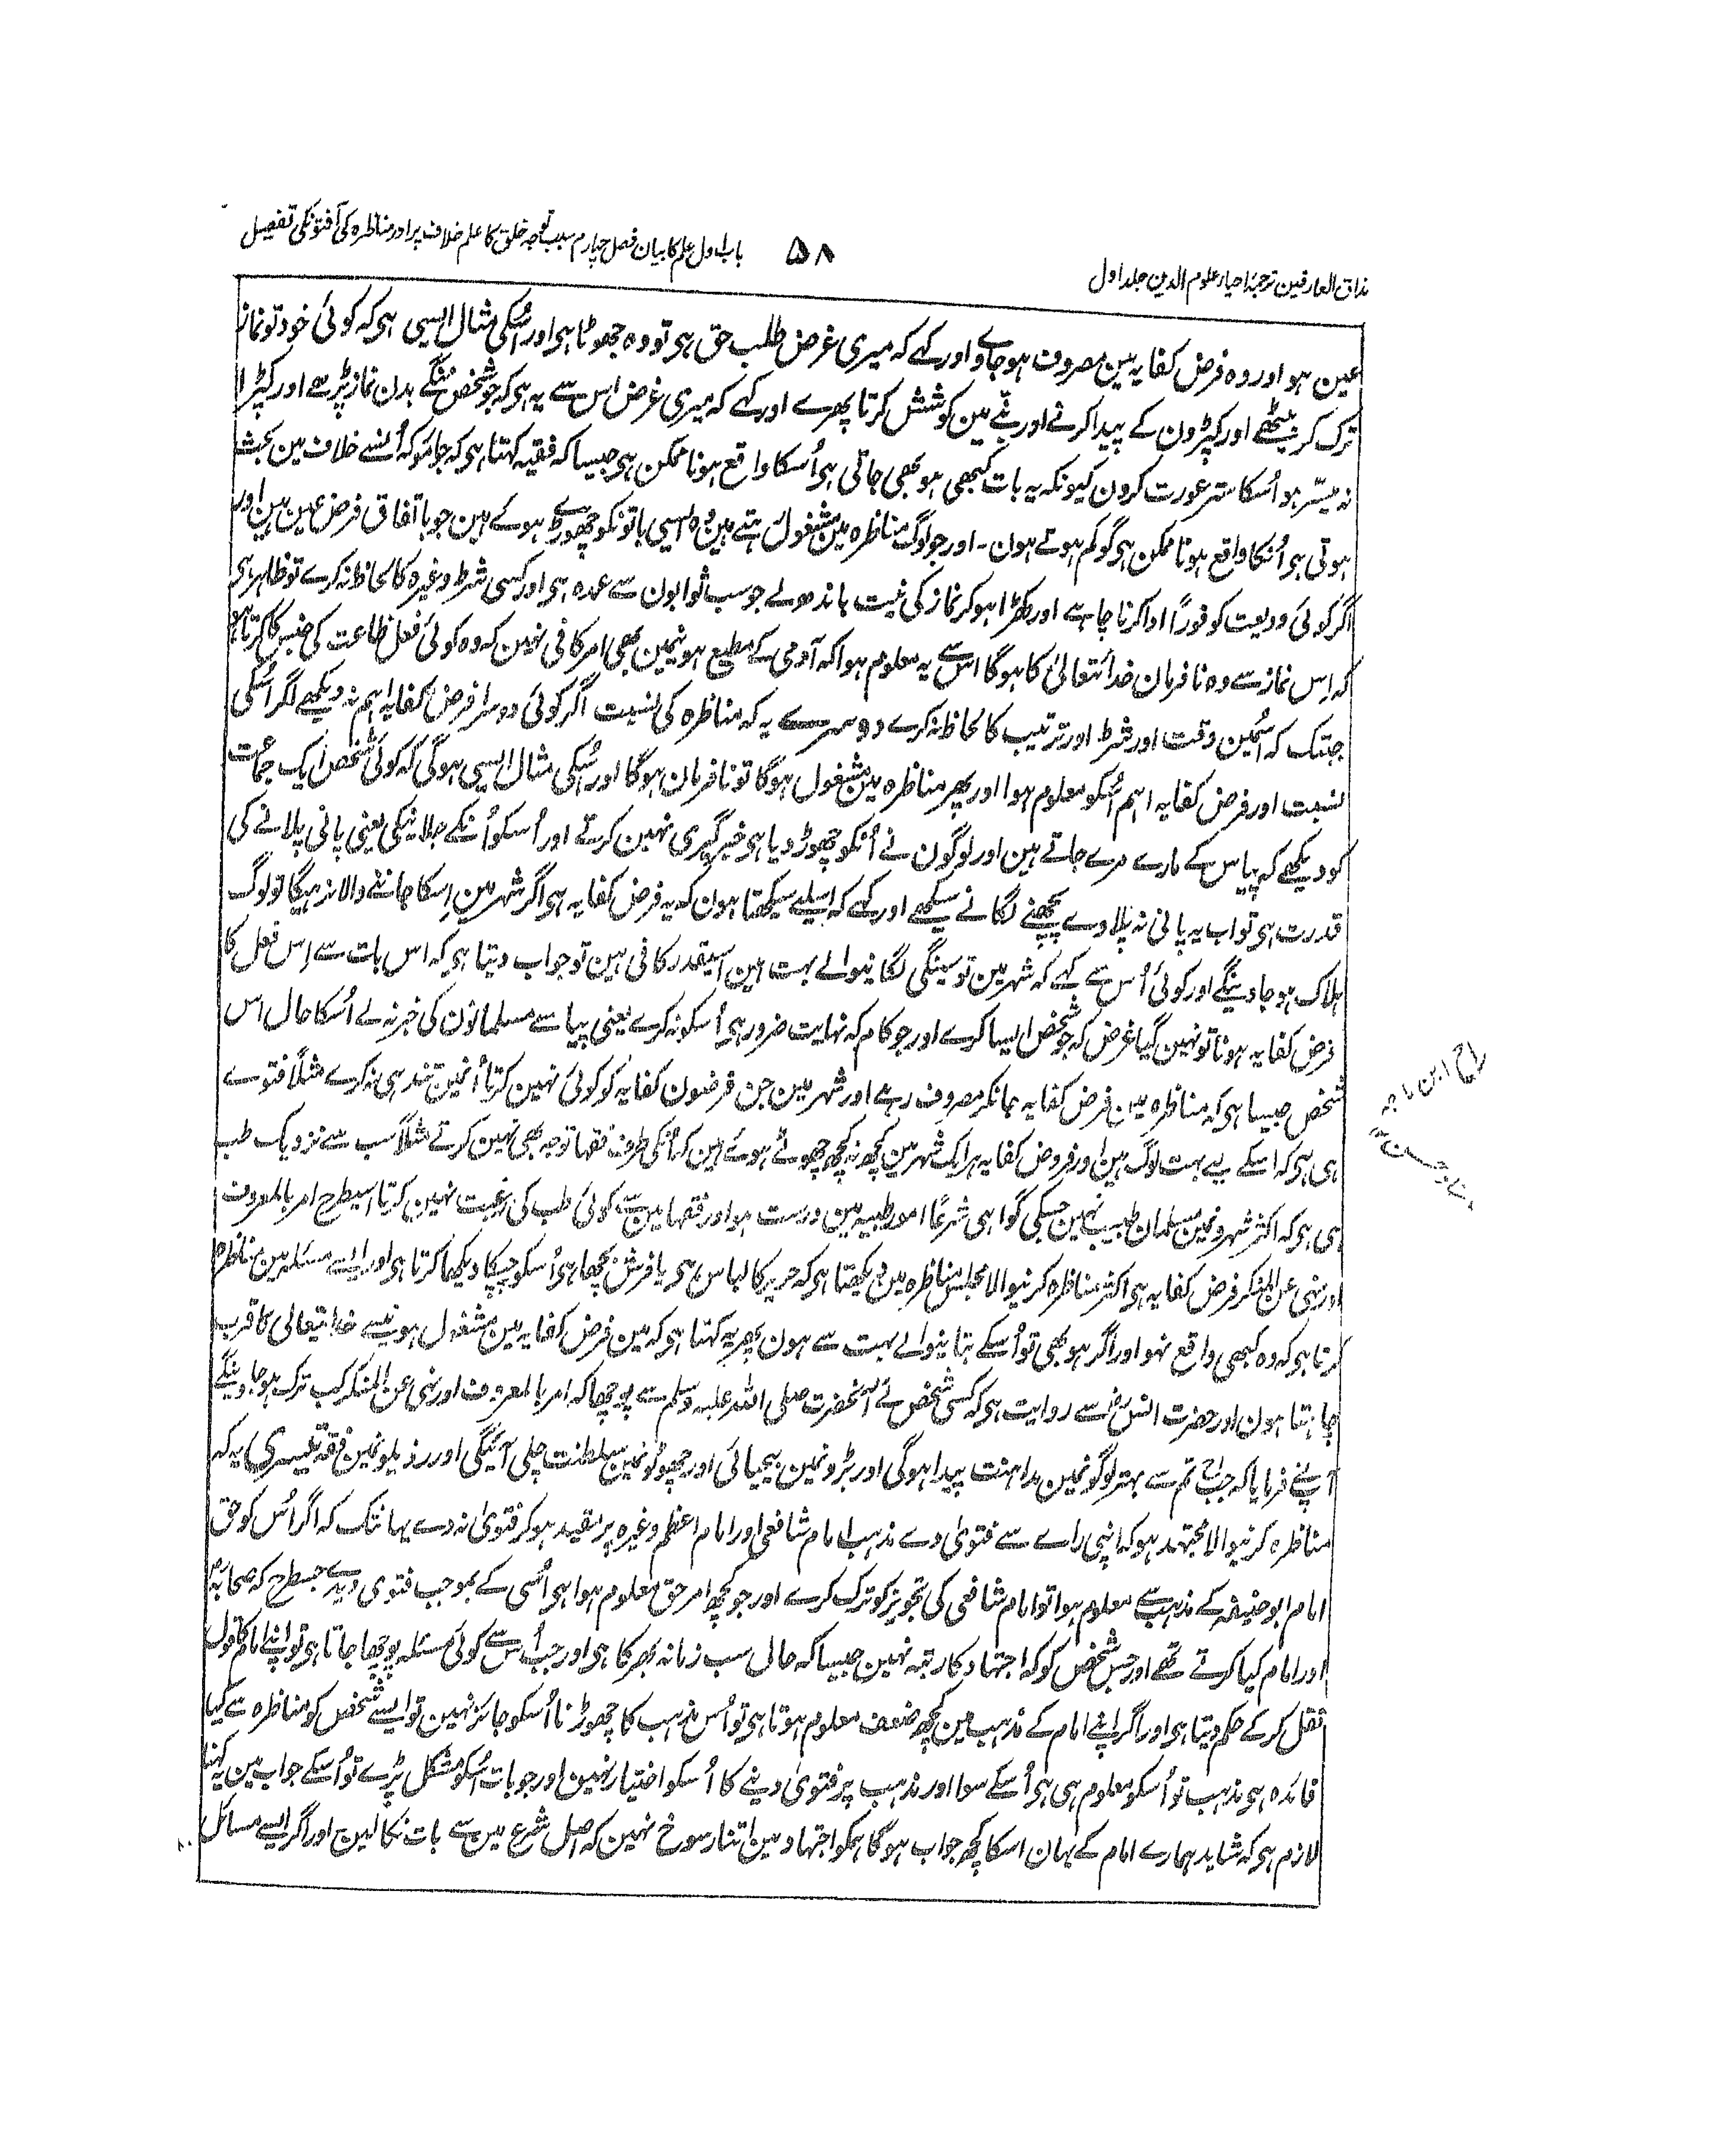 مذاق العارفین ترجمۂ احیاء علوم الدین جلد اول
۵۸
باب اول علم کا بیان فصل چہارم سبب توجہ خلق کا علم خلاف پر اور مناظرہ کی آفتونکی تفصیل
عین ہو اور وہ فرض کفایہ مین مصروف ہو جاوے اور کہے کہ میری غرض طلب حق ہی تو وہ جھوٹا ہی اور اُسکی مثال ایسی ہی کہ کوئی خود تو نماز
ترک کر بیٹھے اور کپڑون کے پیدا کرنے اور بُننے مین کوشش کرتا پھرے اور کہے کہ میری غرض اس سے یہ ہی کہ جو شخص ننگے بدن نماز پڑھے اور کپڑا
نہ میسّر ہو اُسکا ستر عورت کرون کیونکہ یہ بات کبھی ہو بھی جاتی ہی اُسکا واقع ہونا ممکن ہی جیسا کہ فقیہ کہتا ہی کہ جو امور کہ اُنسے خلاف مین بحث
ہوتی ہی اُنکا واقع ہونا ممکن ہی گو کم ہوتے ہون۔ اور جو لوگ مناظرہ مین مشغول رہتے ہین وہ ایسی باتونکو چھوڑے ہوئے ہین جو باتفاق فرض عین ہین اور
اگر کوئی ودیعت کو فوراً ادا کرنا چاہے اور کھڑا ہو کر نماز کی نیت باندھ لے جو سب ثوابون سے عمدہ ہی اور کسی شرط وغیرہ کا لحاظ نہ کرے تو ظاہر ہی
کہ اِس نماز سے وہ نافرمان خدا تعالیٰ کا ہو گا اس سے یہ معلوم ہوا کہ آدمی کے مطیع ہونیمین یہی امر کافی نہین کہ وہ کوئی فعل طاعت کی جنس کا کرتا ہو
جبتک کہ اُسمین وقت اور شرط اور ترتیب کا لحاظ نہ کرے دوسرے یہ کہ مناظرہ کی نسبت اگر کوئی دوسرا فرض کفایہ اہم نہ دیکھے اگر اُسکی
نسبت اور فرض کفایہ اہم اُسکو معلوم ہوا اور پھر مناظرہ مین مشغول ہو گا تو نافرمان ہو گا اور اُسکی مثال ایسی ہو گی کہ کوئی شخص ایک جماعت
کو دیکھے کہ پیاس کے مارے مرے جاتے ہین اور لوگون نے اُنکو چھوڑ دیا ہی خبر گیری نہین کرتے اور اُسکو اُنکے جلانیکی یعنی پانی پلانے کی
قدرت ہی تو اب یہ پانی نہ پلاوے پچھنے لگانے سیکھے اور کہے کہ اسلیے سیکھتا ہون کہ یہ فرض کفایہ ہی اگر شہر مین اِسکا جاننے والا نہ رہیگا تو لوگ
ہلاک ہو جاوینگے اور کوئی اُس سے کہے کہ شہر مین تو سینگی لگانیوالے بہت ہین اسیقدر کافی ہین تو جواب دیتا ہی کہ اس بات سے اِس فعل کا
فرض کفایہ ہونا تو نہین گیا غرض کہ جو شخص ایسا کرے اور جو کام کہ نہایت ضرور ہی اُسکو نہ کرے یعنی پیاسے مسلمانون کی خبر نہ لے اُسکا حال اس
شخص جیسا ہی کہ مناظرہ مین فرض کفایہ جانکر مصروف رہے اور شہر مین جن فرضون کفایہ کو کوئی نہین کرتا اُنمین تندہی نہ کرے مثلاً فتوے
ہی ہی کہ اسکے لیے بہت لوگ ہین اور فروض کفایہ ہر ایک شہر مین کچھ نہ کچھ چھوٹے ہوئے ہین کہ اُنکی طرف فقہا توجہ بھی نہین کرتے مثلاً سب سے نزدیک طب
ہی ہی کہ اکثر شہرونمین مسلمان طبیب نہین جسکی گواہی شرعاً امور طبیہ مین درست ہو اور فقہا مین سے کوئی طب کی رغبت نہین کرتا اسیطرح امر بالمعروف
اور نہی عن المنکر فرض کفایہ ہی اکثر مناظرہ کرنیوالا مجلس مناظرہ مین دیکھتا ہی کہ حریر کا لباس ہی یا فرش بچھا ہی اُسکو چپکا دیکھا کرتا ہی اور ایسے مسئلہ مین مناظرہ
کرتا ہی کہ وہ کبھی واقع نہو اور اگر ہو بھی تو اُسکے بتانیوالے بہت سے ہون پھر یہ کہتا ہی کہ مین فرض کفایہ مین مشغول ہونیسے خدا تعالی کا قرب
چاہتا ہون اور حضرت انس رض سے روایت ہی کہ کسی شخص نے آنحضرت صلی اللہ علیہ وسلم سے پوچھا کہ امر بالمعروف اور نہی عن المنکر کب ترک ہو جاوینگے
آپنے فرمایا کہ جب تم سے بہتر لوگونمین مداہنت پیدا ہو گی اور بڑونمین بیحیائی اور چھوٹونمین سلطنت چلی آئیگی اور رذیلونمین فقہ تیسری یہ کہ
مناظرہ کرنیوالا مجتہد ہو کہ اپنی رائے سے فتویٰ دے مذہب امام شافعی اور امام اعظم وغیرہ پر مقید ہو کر فتویٰ نہ دے یہانتک کہ اگر اُس کو حق
امام ابو حنیفہ کے مذہب سے معلوم ہوا تو امام شافعی کی تجویز کو ترک کرے اور جو کچھ امر حق معلوم ہوا ہی اُسی کے بموجب فتوی دیدے جسطرح کہ صحابہ
اور امام کیا کرتے تھے اور جس شخص کو کہ اجتہاد کا رتبہ نہین جیسا کہ حال سب زمانہ بھر کا ہی اور جب اُس سے کوئی مسئلہ پوچھا جاتا ہی تو اپنے امام کا قول
نقل کر کے حکم دیتا ہی اور اگر اپنے امام کے مذہب مین کچھ ضعف معلوم ہوتا ہی تو اُس مذہب کا چھوڑنا اُسکو جائز نہین تو ایسے شخص کو مناظرہ سے کیا
فائدہ ہی مذہب تو اُسکو معلوم ہی ہی اُسکے سوا اور مذہب پر فتویٰ دینے کا اُسکو اختیار نہین اور جو بات اُسکو مشکل پڑے تو اُسکے جواب مین یہ کہنا
لازم ہی کہ شاید ہمارے امام کے یہان اسکا کچھ جواب ہو گا ہمکو اجتہاد مین اتنا رسوخ نہین کہ اصل شرع مین سے بات نکالین اور اگر ایسے مسائل
ابن ماجہ